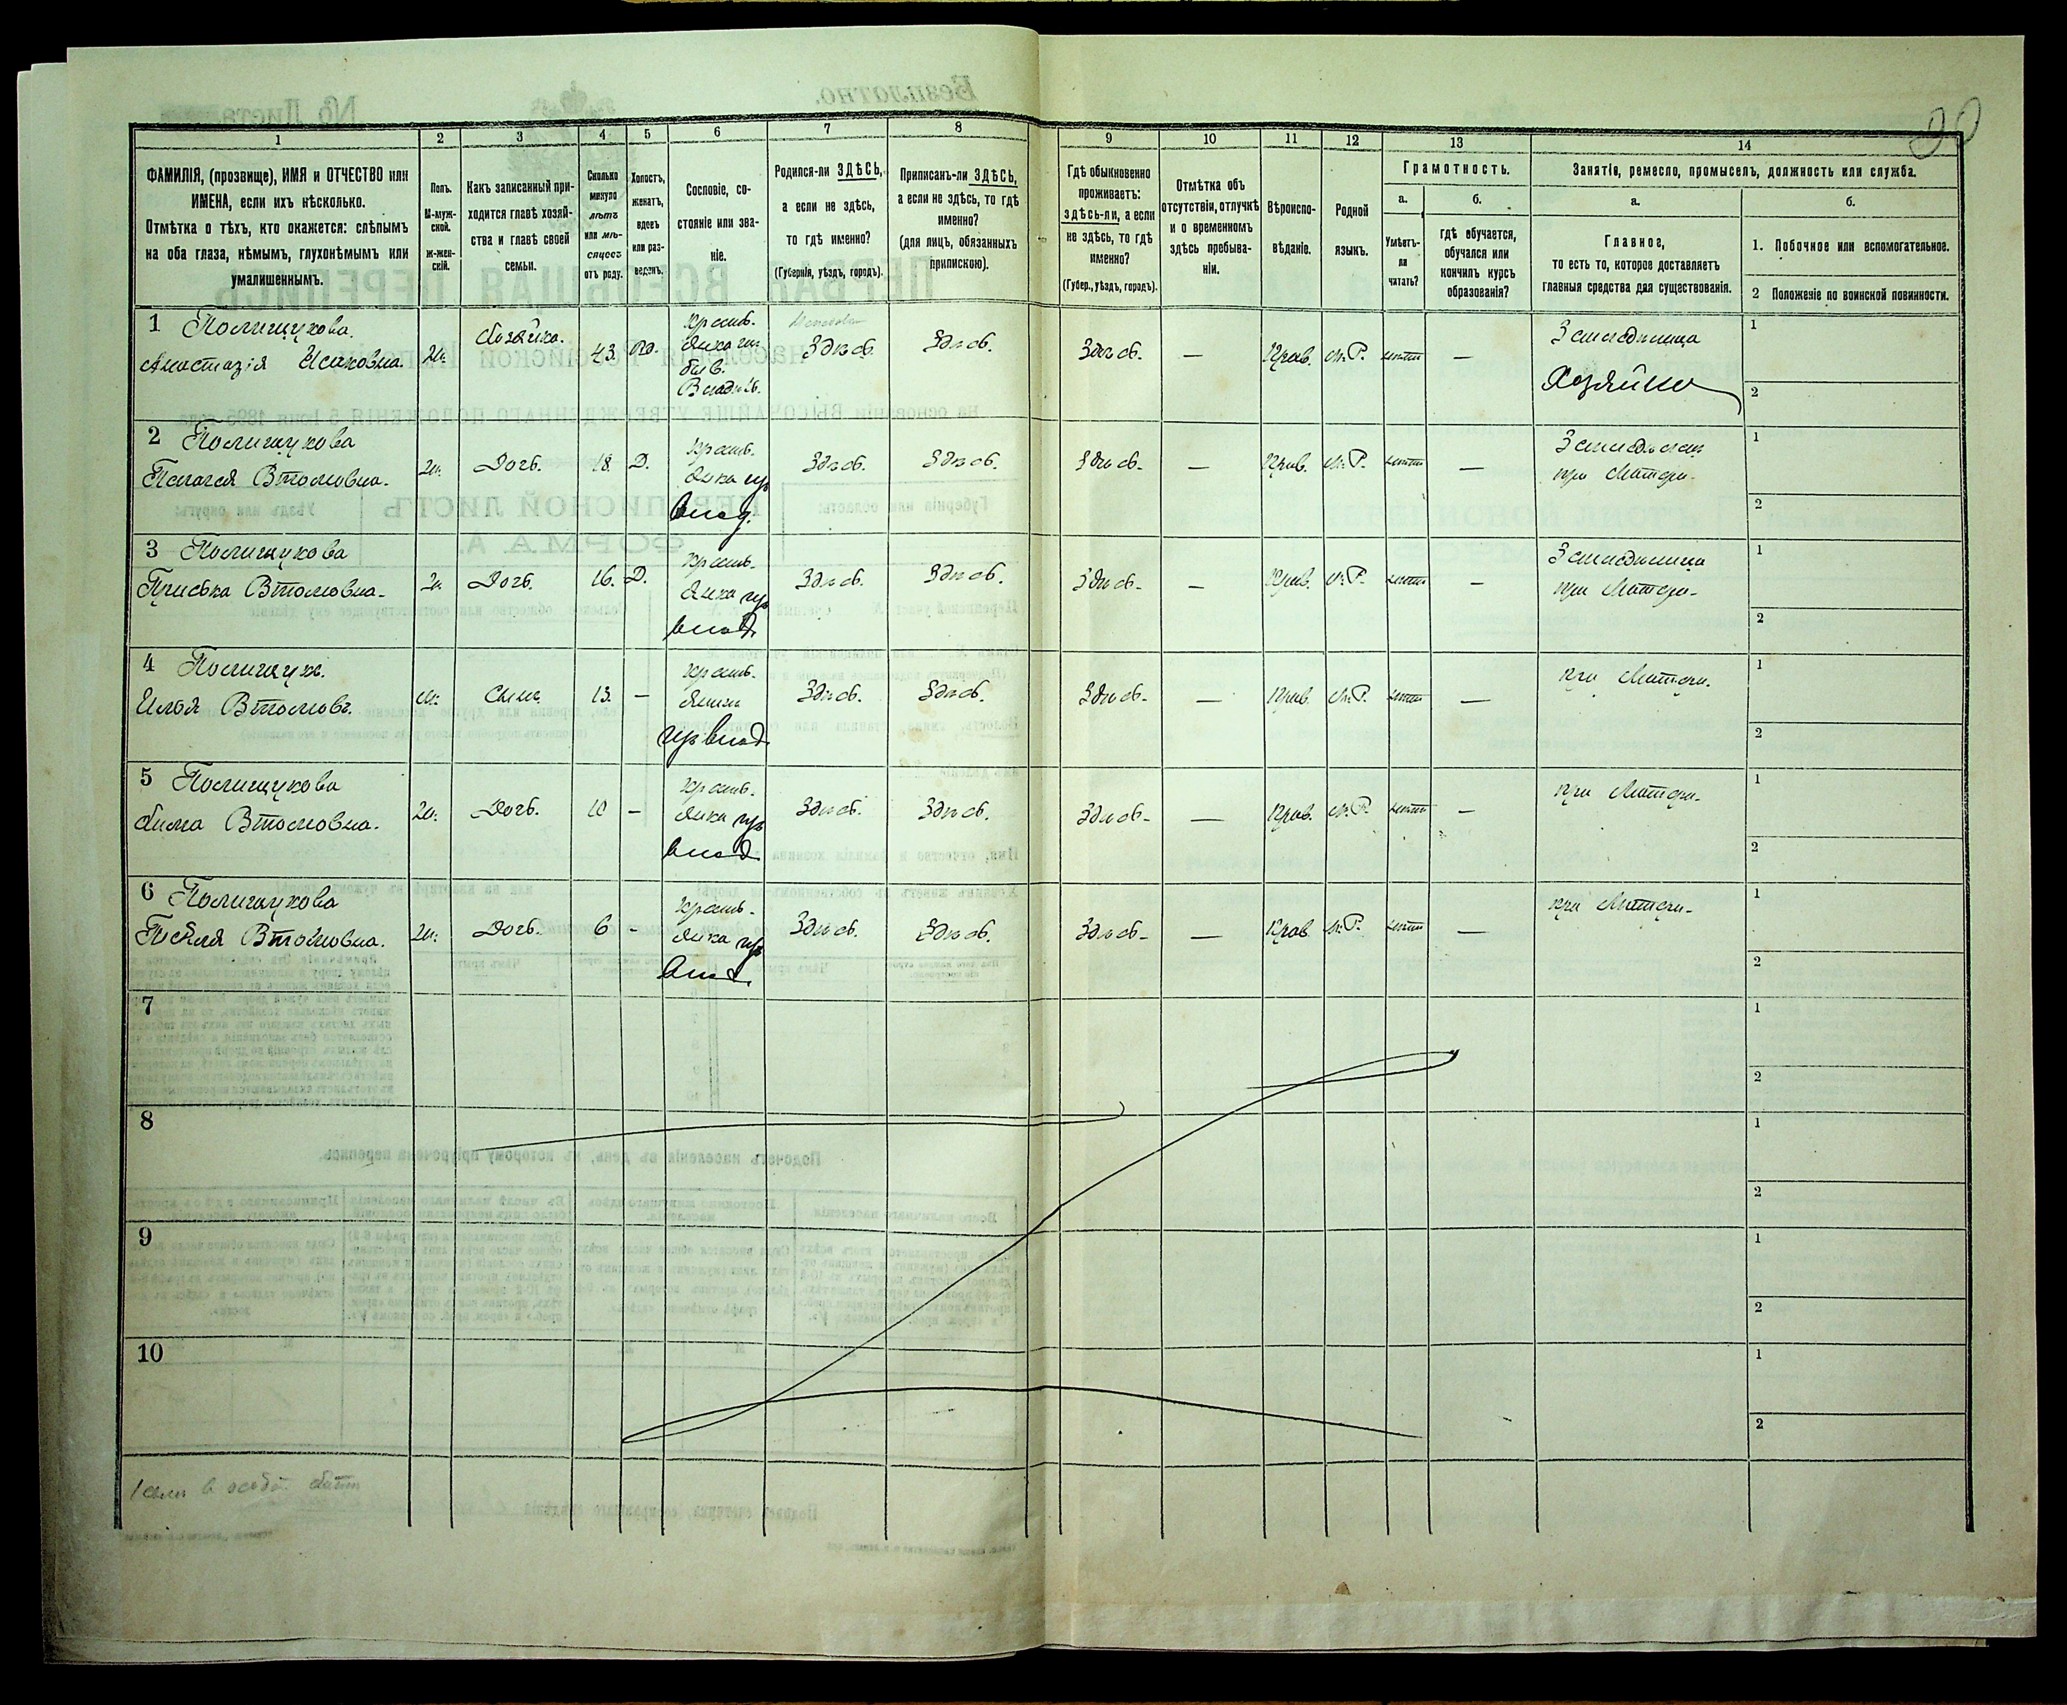 90
1 2 3 4 5 6 7 8 9 10 11 12 13 14
ФАМИЛІЯ, (прозвище), ИМЯ и ОТЧЕСТВО или
ИМЕНА, если ихъ нѣсколько.
Отмѣтка о тѣхъ, кто окажется: слѣпымъ
на оба глаза, нѣмымъ, глухонѣмымъ или
умалишеннымъ.
Полъ.
М-муж-
ской.
ж-жен-
скій.
Какъ записанный при-
ходится главѣ хозяй-
ства и главѣ своей
семьи.
Сколько
минуло
лѣтъ
или мѣ-
сяцевъ
отъ роду.
Холостъ,
женатъ,
вдовъ
или раз-
веденъ.
Сословіе, со-
стояніе или зва-
ніе.
Родился-ли ЗДѢСЬ,
а если не здѣсь,
то гдѣ именно?
(Губернія, уѣздъ, городъ).
Приписанъ-ли ЗДѢСЬ,
а если не здѣсь, то гдѣ
именно?
(для лицъ, обязанныхъ
припискою).
Гдѣ обыкновенно
проживаетъ:
здѣсь-ли, а если
не здѣсь, то гдѣ
именно?
(Губер., уѣздъ, городъ).
Отмѣтка объ
отсутствіи, отлучкѣ
и о временномъ
здѣсь пребыва-
ніи.
Вѣроиспо-
вѣданіе.
Родной
языкъ.
Грамотность.
а.
Умѣетъ-
ли
читать?
б.
гдѣ обучается,
обучался или
кончилъ курсъ
образованія?
Занятіе, ремесло, промыселъ, должность или служба.
а.
Главное,
то есть то, которое доставляетъ
главныя средства для существованія.
б.
1. Побочное или вспомогательное.
2 Положеніе по воинской повинности.
1 Полищукова.
Анастазія Исаковна.
ж. Хозяйка. 43. вд.
Крест.
янка изъ
быв.
Владѣл.
Здѣсь. Здѣсь. Здѣсь. — Прав. М.Р. нетъ —
Земледѣлица
Хозяйка
1
2
2 Полищукова
Пелагея Втомовна.
ж. Дочь. 18. Д.
Крест.
янка изъ
влад.
Здѣсь. Здѣсь. Здѣсь — Прав. М.Р. нетъ —
при Матери.
1
2
3 Полищукова
Приська Втомовна
ж. Дочь. 16. Д.
Крест.
янка изъ
влад.
Здѣсь. Здѣсь. Здѣсь — Прав. М.Р. нетъ —
Земледѣлица
при Матери
1
2
4 Полищукъ.
Илья Втомовъ.
м. Сынъ. 13. —
Крест.
янинъ
изъ влад.
Здѣсь. Здѣсь Здѣсь — Прав. М.Р. нетъ —
при Матери.
1
2
5 Полищукова
Втомовна.
ж. Дочь. 10 —
Крест.
янка изъ
влад.
Здѣсь. Здѣсь. Здѣсь — Прав. М.Р. нетъ —
при Матери
1
2
6 Полищукова
Втомовна.
ж. Дочь. 6 —
Крест.
янка изъ
влад.
Здѣсь. Здѣсь. Здѣсь — Прав М.Р. нетъ —
при Матери
1
2
7
1
2
8
1
2
9
1
2
10
1
2